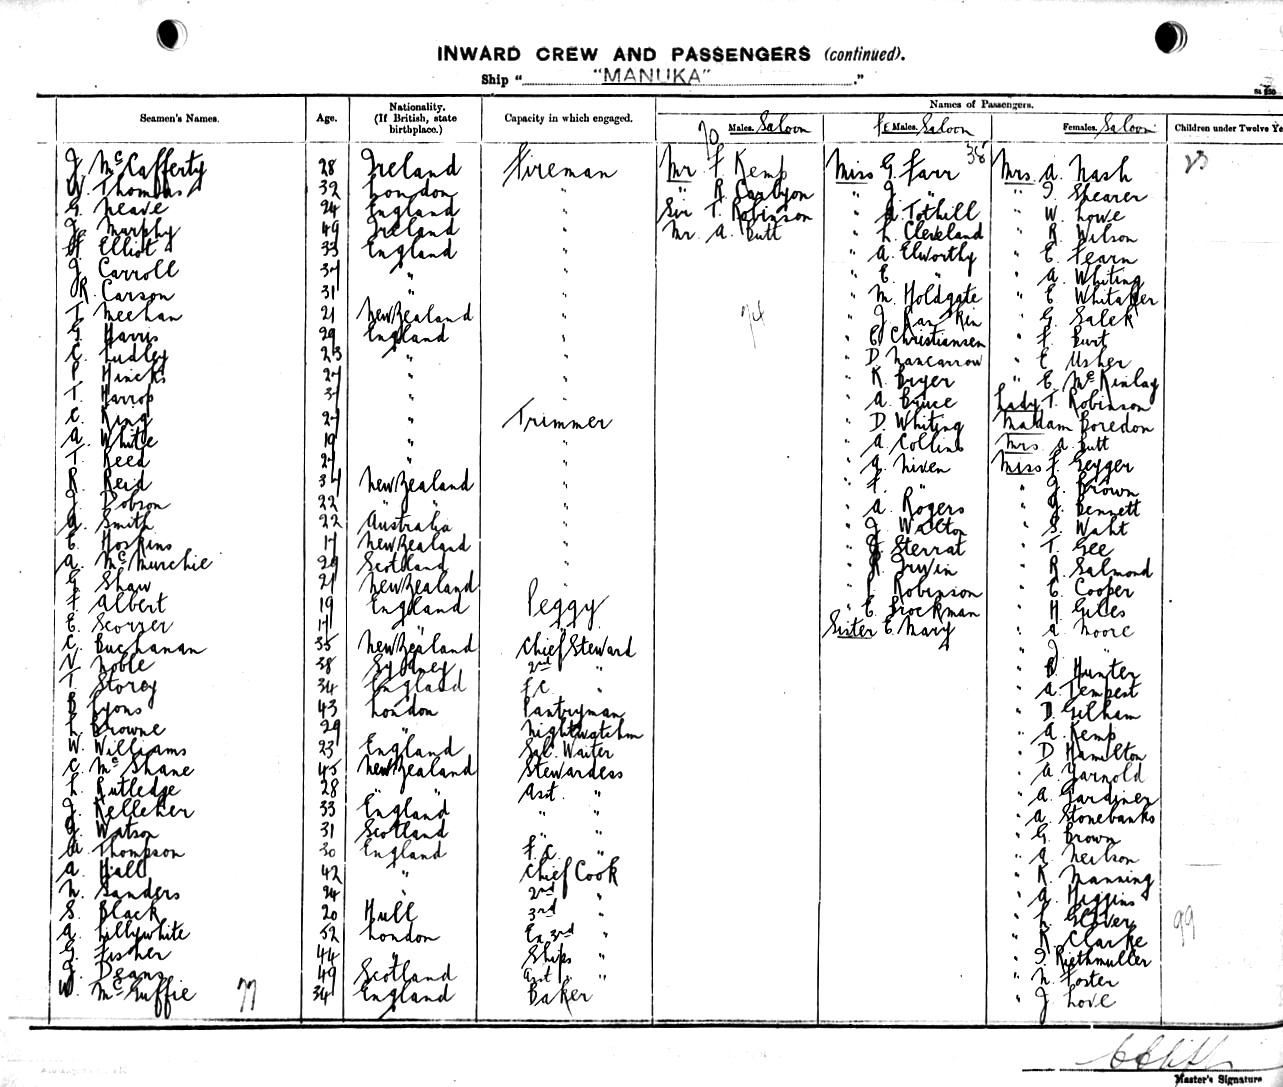 INWARD CREW AND PASSENGERS (continued).
Ship " "MANUKA" ."
Seamen's Names. Age. Nationality. (If British, state birthplace.) Capacity in which engaged. Names of Passengers.
Males. Saloon FeMales. Saloon Females. Saloon Children under Twelve Ye
70 38 23
J. McCafferty 28 Ireland Fireman Mr F Kemp Miss G Farr Mrs A. Nash
W. Thomas 32 London " " R Carlyon " J " " I. Shearer
G. Neave 24 England " Sir T. Robinson " A Tothill " W. Lowe
J. Murphy 49 Ireland " Mr. A. Butt " L. Cleveland " R. Wilson
H Elliot 33 England " " A. Elworthy " E. Fearn
J. Carroll 37 " " " E. " " A. Whiting
R. Carson 31 " " " M. Holdgate " E Whitaker
T Meehan 21 New Zealand " 74 " J. Rankin " G. Salek
G. Harris 29 England " " E Christiansen " F. Burt
C. Ludley 23 " " " D Nancarrow " E Usher
P Hincks 27 " " " K Bryer " E McKinlay
T. Harrop 37 " " " A Bruce Lady T. Robinson
C. King 27 " Trimmer " D. Whiting Madam Boredon
A. White 19 " " " A Collins Mrs A Butt
T. Reed 27 " " " A. Niven Miss F. Geyger
R. Reid 34 New Zealand " " F. " " J. Brown
J. Dobson 22 " " " " A Rogers " J. Bennett
A. Smith 22 Australia " " J Walton " S. Waht
E. Hoskins 17 New Zealand " " J Sterrat " T. Gee
A. McMurchie 29 Scotland " " R. Irwin " R. Salmond
G Shaw 21 New Zealand " " Robinson " E Cooper
F Albert 19 England Peggy " E. Brockman " H Giles
E. Scorrer 17 " " Sister E Mary " A. Moore
C. Buchanan 35 New Zealand Chief Steward " J "
V. Noble 38 Sydney 2nd " " B Hunter
T. Storey 34 England F.C. " " A Tempest
B Lyons 43 London Pantryman " D Gilham
L. Browne 29 " Nightwatchm " A. Kemp
W. Williams 23 England Sal. Waiter " D Hamilton
C. McShane 45 New Zealand Stewardess " A Yarnold
L. Rutledge 28 " " Asst. " " A. Gardiner
J. Kelleher 33 England " " " A. Stonebanks
J. Watson 31 Scotland " " " G Brown
A Thompson 30 England F.C. " " A Neilson
A. Hall 42 " Chief Cook " K Manning
N. Sanders 24 " 2nd " " A. Higgins
S. Black 20 Hull 3rd " " L. Glover 99
A. Lillywhite 52 London Ex 3rd " " K. Clarke
G. Fisher 44 " Ships " " I. Riethmuller
J. Deans 49 Scotland Asst. " " N Foster
W. McGuffie 77 34 England Baker " J Love
Master's Signature